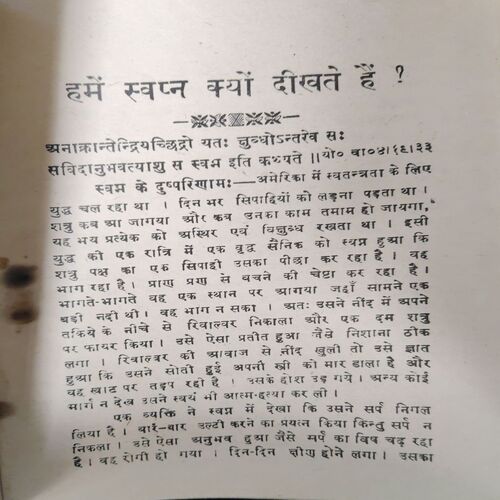 हमें स्वप्न क्यों दीखते हैं ?
अनाक्रान्तेन्द्रियच्छिद्रो यतः क्षुब्धोऽन्तरेव सः
सविदानुभवत्याशु स स्वप्न इति कथ्यते ॥यो० वा०४।१९।३३
स्वप्न के दुष्परिणामः—अमेरिका में स्वतन्त्रता के लिए
युद्ध चल रहा था । दिन भर सिपाहियों को लड़ना पड़ता था ।
शत्रु कब आ जागया और कब उनका काम तमाम हो जायगा,
यह भय प्रत्येक को अस्थिर एवं विक्षुब्ध रखता था । इसी
युद्ध की एक रात्रि में एक वृद्ध सैनिक को स्वप्न हुआ कि
शत्रु पक्ष का एक सिपाही उसका पीछा कर रहा है । वह
भाग रहा है । प्राण प्रण से बचने की चेष्टा कर रहा है ।
भागते-भागते वह एक स्थान पर आगया जहाँ सामने एक
बड़ी नदी थी । वह भाग न सका । अतः उसने नींद में अपने
तकिये के नीचे से रिवाल्वर निकाला और एक दम शत्रु
पर फायर किया । उसे ऐसा प्रतीत हुआ जैसे निशाना ठीक
लगा । रिवाल्वर की आवाज से नींद खुली तो उसे ज्ञात
हुआ कि उसने सोती हुई अपनी स्त्री को मार डाला है और
वह खाट पर तड़प रही है । उसके होश उड़ गये । अन्य कोई
मार्ग न देख उसने स्वयं भी आत्म-हत्या कर ली ।
एक व्यक्ति ने स्वप्न में देखा कि उसने सर्प निगल
लिया है । बारे-बार उल्टी करने का प्रयत्न किया किन्तु सर्प न
निकला । उसे ऐसा अनुभव हुआ जैसे सर्प का विष चढ़ रहा
है । वह रोगी हो गया । दिन-दिन क्षीण होने लगा । उसका